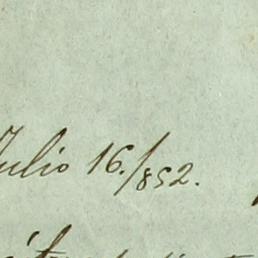 Julio 16./852.